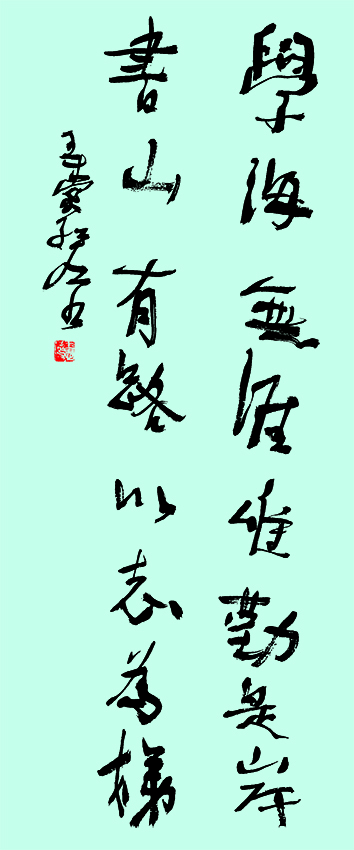 學海無涯唯勤是岸
書山有路以志為梯